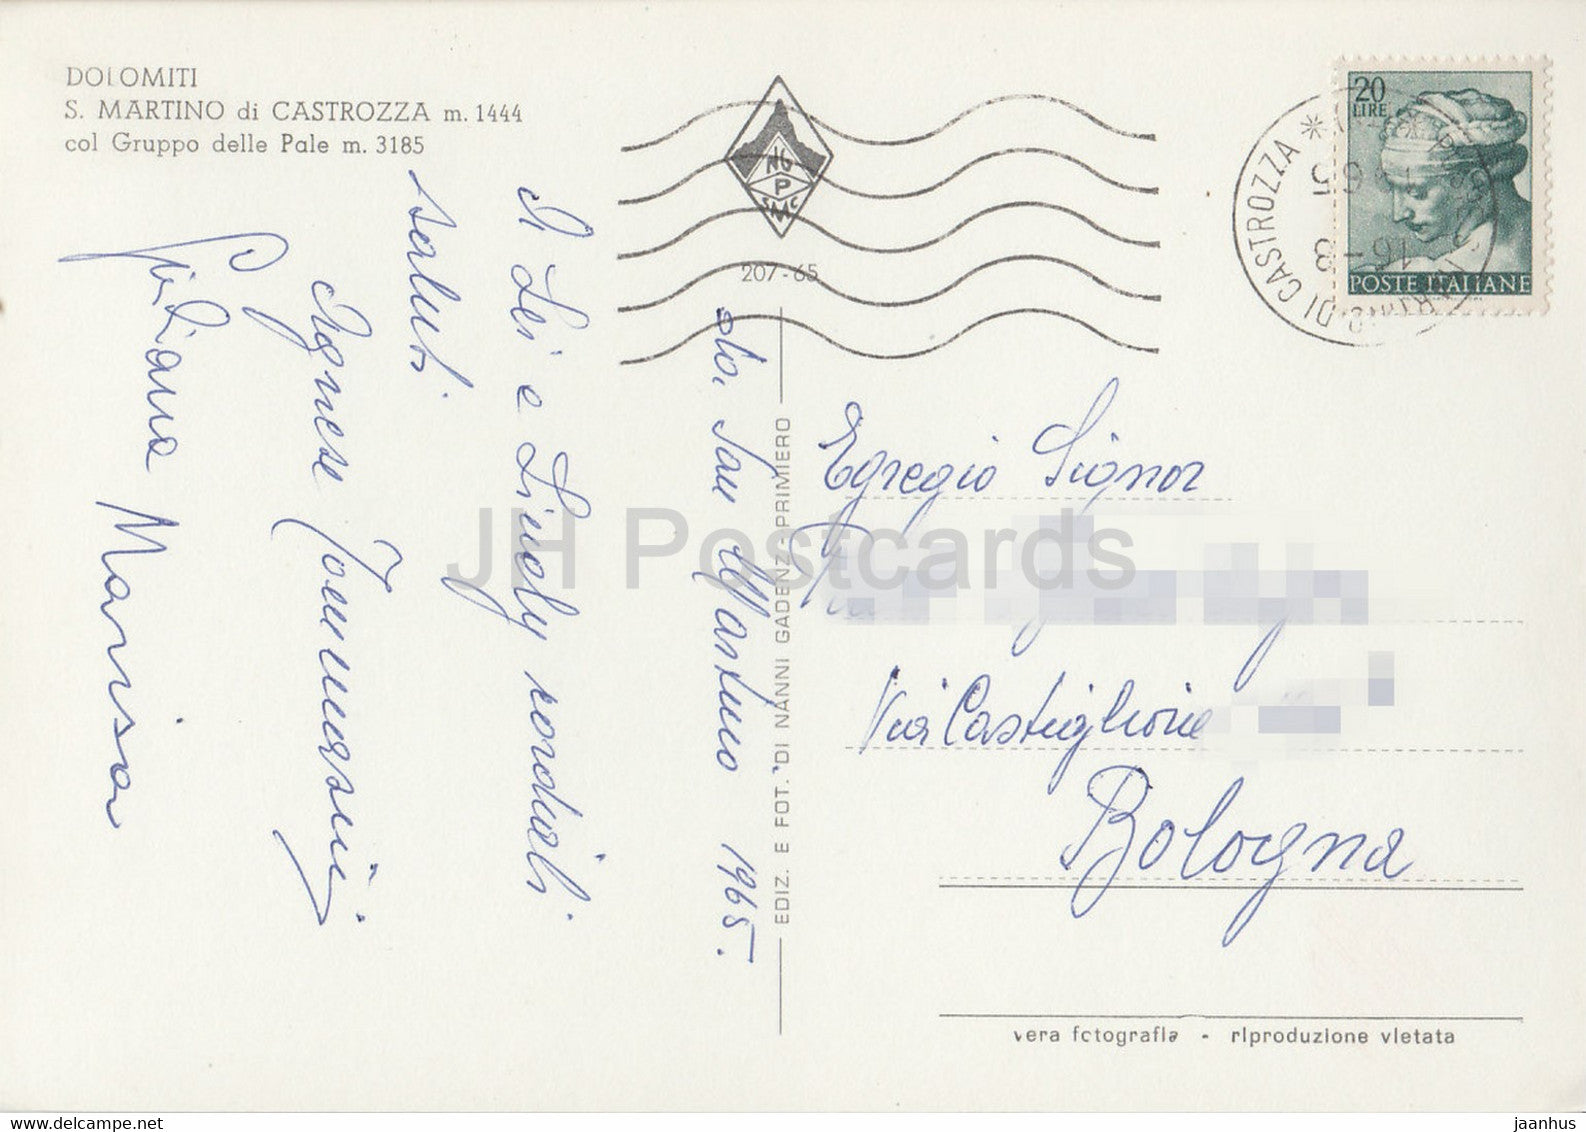 DOLOMITI
S. MARTINO di CASTROZZA m. 1444
col Gruppo delle Pale m. 3185
NG
P
SMC
207-65
20
LIRE
POSTE ITALIANE
DI CASTROZZA
16-8
65
dla San Martino 1965.
A Lei e Sig. cordiali
saluti
Agnese Tommasini
Giuliana Marisa
EDIZ. E FOT. DI NANNI GADENZ-PRIMIERO
Egregio Signor
Via Castiglione
Bologna
vera fotografia - riproduzione vietata
JH Postcards
delcampe.net
jaanhus